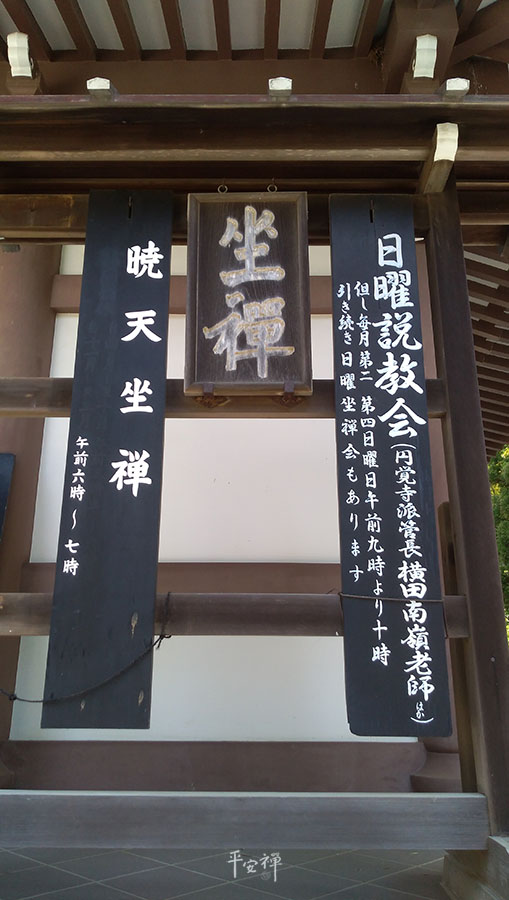 日曜説教会(円覚寺派管長 横田南嶺老師(ほか))
但し毎月第二 第四日曜日午前九時より十時
引き続き日曜坐禅会もあります
坐禪
暁天坐禅
午前六時〜七時
平安禪